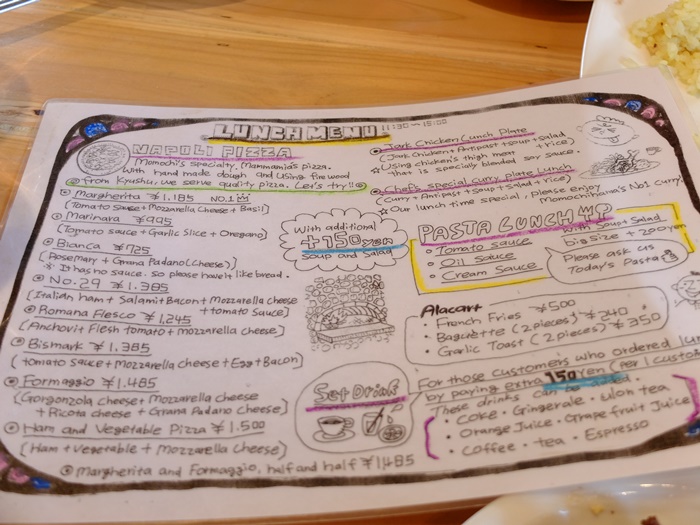 LUNCH MENU 11:30~15:00
NAPOLI PIZZA
Momochi's specialty, Mammamia's pizza.
With hand made dough and Using fire wood
From Kyushu, we serve quality pizza. Let's try!!
Margherita ¥1.185 NO.1
(Tomato sauce+Mozzarella Cheese+Basil)
Marinara ¥995
(Tomato sauce+Garlic Slice+Oregano)
Bianca ¥725
(Rosemary+Grana Padano(Cheese))
※ It has no sauce. so please have it like bread.
No.29 ¥1.385
(Italian ham+Salami+Bacon+Mozzarella cheese
+tomato sauce)
Romana Flesco ¥1,245
(Anchovit Flesh tomato+mozzarella cheese)
Bismark ¥1.385
(tomato sauce+Mozzarella cheese+Egg+Bacon)
Formaggio ¥1.485
(Gorgonzola cheese+Mozzarella cheese
+Ricota cheese+Grana Padano Cheese)
Ham and Vegetable Pizza ¥1.500
(Ham+Vegetable+Mozzarella Cheese)
Margherita and Formaggio, half and half ¥1,485
With additional
+150yen
soup and Salad
Set Drink
Jark Chicken Lunch Plate
(Jark Chicken+Antipast+soup+salad
+rice)
☆ Using chicken's thigh meat
that is specially blended soy sauce.
Chef's special curry plate Lunch
(Curry+Antipast+soup+Salad+rice)
☆ Our lunch time special, please enjoy
Momochihama's No1 curry!
PASTA LUNCH
• Tomato sauce
• Oil Sauce
• Cream Sauce
with Soup+Salad
big size + 200yen
Please ask us
Today's Pasta
Alacart
• French Fries ¥500
• Baguette (2pieces) ¥240
• Garlic Toast (2 Piels) ¥350
For those customers who ordered
by paying extra 150yen (per 1
These drinks can be
• Coke • Gingerale • Ulon tea
• Orange Juice • Grape fruit Juice
• Coffee • tea • Espresso